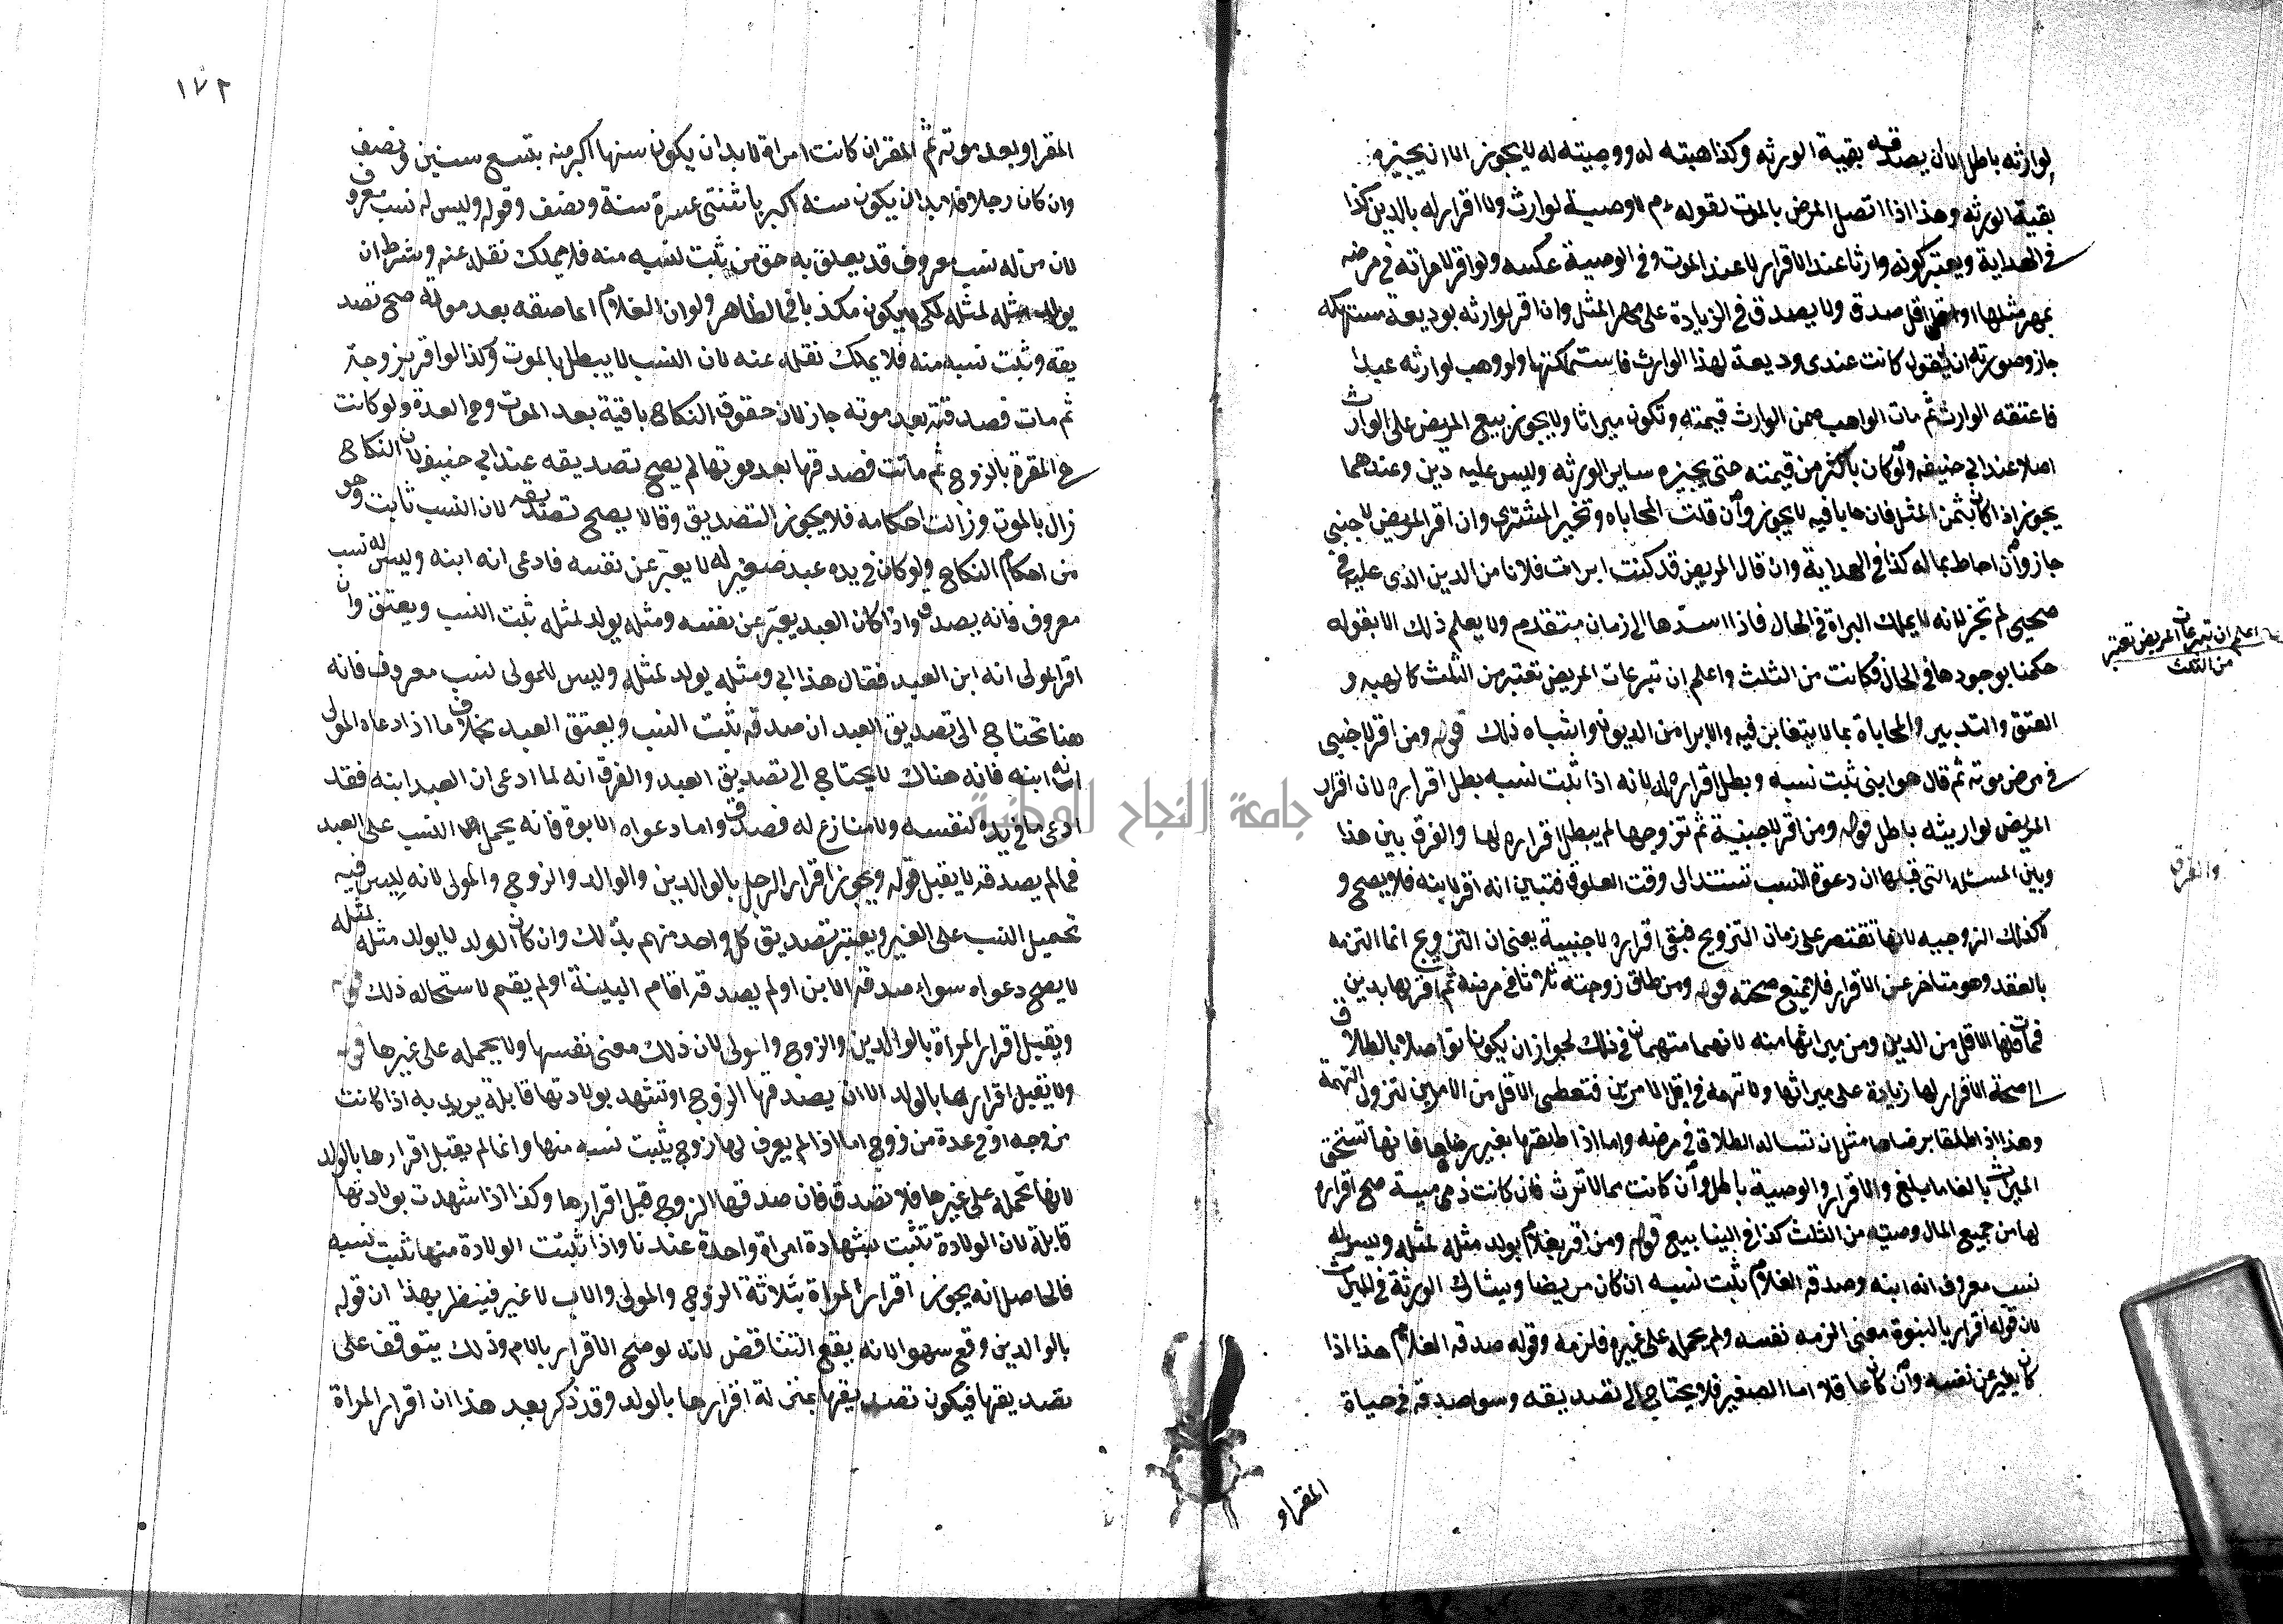 لوارثه باطل الا ان يصدقه بقية الورثه وكذا هبته له ووصيته له لا يجوز الا ان يجيزه
بقية الورثه وهذا اذا اتصل المرض بالموت لقوله عم لا وصية لوارث ولا اقرار له بالدين كذا
في الهداية ويعتبر كونه وارثا عند الاقرار لا عند الموت وفي الوصية عكسه ولو اقر لامراته في مرضه
بمهر مثلها او اقل صدق ولا يصدق في الزيادة على مهر المثل وان اقر لوارثه بوديعة مستهلكه
جاز وصورته ان يقول كانت عندي وديعة لهذا الوارث فاستهلكتها ولو وهب لوارثه عبدا
فاعتقه الوارث ثم مات الواهب ضمن الوارث قيمته وتكون ميراثا ولا يجوز بيع المريض على الوارث
اصلا عند ابي حنيفه ولو كان باكثر من قيمته حتى يجيزه ساير الورثه وليس عليه دين وعندهما
يجوز اذا كان بثمن المثل فان حابا فيه لا يجوز وان قلت المحاباه وتخير المشتري وان اقر المريض لاجنبي
جاز وان احاط بماله كذا في الهداية وان قال المريض قد كنت ابرات فلانا من الدين الذي عليه في
صحتي لم تجز لانه لا يملك البراة في الحال فاذا اسندها الى زمان متقدم ولا يعلم ذلك الا بقوله
حكمنا بوجودها في الحال فكانت من الثلث واعلم ان تبرعات المريض تعتبر من الثلث كالهبه و
العتق والتدبير والمحاباة بما لا يتغابن فيه والابرا من الديون واشباه ذلك قوله ومن اقر لاجنبي
في مرض موته ثم قال هو ابني ثبت نسبه وبطل اقراره له لانه اذا ثبت نسبه بطل اقراره لان اقرار
المريض لوارثه باطل قوله ومن اقر لاجنبية ثم تزوجها لم يبطل اقراره لها والفرق بين هذا
وبين المسئله التي قبلها ان دعوة النسب تستند الى وقت العلوق فتبين انه اقر لابنه فلا يصح و
لا كذلك الزوجيه لانها تقتصر على زمان التزويج فبقى اقراره لاجنبية يعني ان التزويج انما التزمه
بالعقد وهو متاخر عن الاقرار فلا يمنع صحته قوله ومن طلق زوجته ثلاثا في مرضه ثم اقر لها بدين
فمات فلها الاقل من الدين ومن ميراثها منه لانهما متهمان في ذلك لجواز ان يكونا تواصلا بالطلاق
الى صحة الاقرار لها زيادة على ميراثها ولا تهمه في اقل الامرين فتعطى الاقل من الامرين لتزول التهمة
وهذا اذا طلقها برضاها مثل ان تساله الطلاق في مرضه واما اذا طلقها بغير رضاها فانها تستحق
الميراث بالغا ما بلغ والاقرار والوصية باطل وان كانت ممن لا ترث فان كانت ذمية صح اقراره
لها من جميع المال وصيته من الثلث كذا في الينابيع قوله ومن اقر بغلام يولد مثله لمثله وليس له
نسب معروف انه ابنه وصدقه الغلام ثبت نسبه ان كان مريضا ويشارك الورثة في الميراث
لان قوله اقرار بالبنوة معنى الزمه نفسه ولم يحمله على غيره فلزمه وقوله صدقه الغلام هذا اذا
كان يعبر عن نفسه وان كان عاقلا اما الصغير فلا يحتاج الى تصديقه وسوا صدقه في حياة
المقر او
اعلم ان تبرعات المريض تعتبر
من الثلث
والفرق
١٧٢
المقر او بعد موته ثم المقر ان كانت امراة لا بد ان يكون سنها اكبر منه بتسع سنين ونصف
وان كان رجلا فلا بد ان يكون سنه اكبر باثنتى عشرة سنة ونصف وقوله وليس له نسب معروف
لان من له نسب معروف قد يعلق به حق من ثبت نسبه منه فلا يملك نقله عنه وشرط ان
يولد مثله لمثله لكي لا يكون مكذبا في الظاهر ولو ان الغلام انما صدقه بعد موته صح تصد
يقه وثبت نسبه منه فلا يملك نقله عنه لان النسب لا يبطل بالموت وكذا لو اقر بزوجة
ثم مات فصدقته بعد موته جاز لان حقوق النكاح باقية بعد الموت وهي العدة ولو كانت
هي المقرة بالزوج ثم ماتت فصدقها بعد موتها لم يصح تصديقه عند ابي حنيفه لان النكاح
زال بالموت وزالت احكامه فلا يجوز التصديق وقالا يصح تصديقه لان النسب ثابت وهو
من احكام النكاح ولو كان في يده عبد صغير له لا يعبر عن نفسه فادعى انه ابنه وليس له نسب
معروف فانه يصدق واذا كان العبد يعبر عن نفسه ومثله يولد لمثله ثبت النسب ويعتق وان
اقر المولى انه ابن العبد فقال هذا ابي ومثله يولد لمثله وليس للمولى نسب معروف فانه
هنا يحتاج الى تصديق العبد ان صدقه ثبت النسب ويعتق العبد بخلاف ما اذا ادعاه المولى
انه ابنه فانه هناك لا يحتاج الى تصديق العبد والفرق انه لما ادعى ان العبد ابنه فقد
ادعى ما في يده لنفسه ولا منازع له فصدق واما دعواه الابوة فانه يحمل النسب على العبد
فما لم يصدقه لا يقبل قوله ويجوز اقرار الرجل بالوالدين والوالد والزوج والمولى لانه ليس فيه
تحميل النسب على الغير ويعتبر تصديق كل واحد منهم بذلك وان كان الولد لا يولد مثله لمثله
لا يصح دعواه سواء صدقه الابن او لم يصدقه اقام البينة او لم يقم لاستحاله ذلك قوله
ويقبل اقرار المراة بالوالدين والزوج والمولى لان ذلك معنى نفسها ولا يحمله على غيرها قوله
ولا تقبل اقرارها بالولد الا ان يصدقها الزوج او تشهد بولادتها قابلة يريد به اذا كانت
مزوجه او في عدة من زوج اما اذا لم يعرف لها زوج يثبت نسبه منها وانما لم يقبل اقرارها بالولد
لانها تحمله على غيرها فلا تصدق فان صدقها الزوج قبل اقرارها وكذا اذا شهدت بولادتها
قابلة لان الولادة تثبت بشهادة امراة واحدة عندنا واذا ثبتت الولادة منها ثبت نسبه
فالحاصل انه يجوز اقرار المراة بثلاثة الزوج والمولى والاب لا غير فينظر بهذا ان قوله
بالوالدين وقع سهوا لانه يقع التناقض لانه لو صح الاقرار بالام وذلك يتوقف على
تصديقها فيكون تصديقها بمنزلة اقرارها بالولد وقد ذكر بعد هذا ان اقرار المراة
جامعة النجاح الوطنية